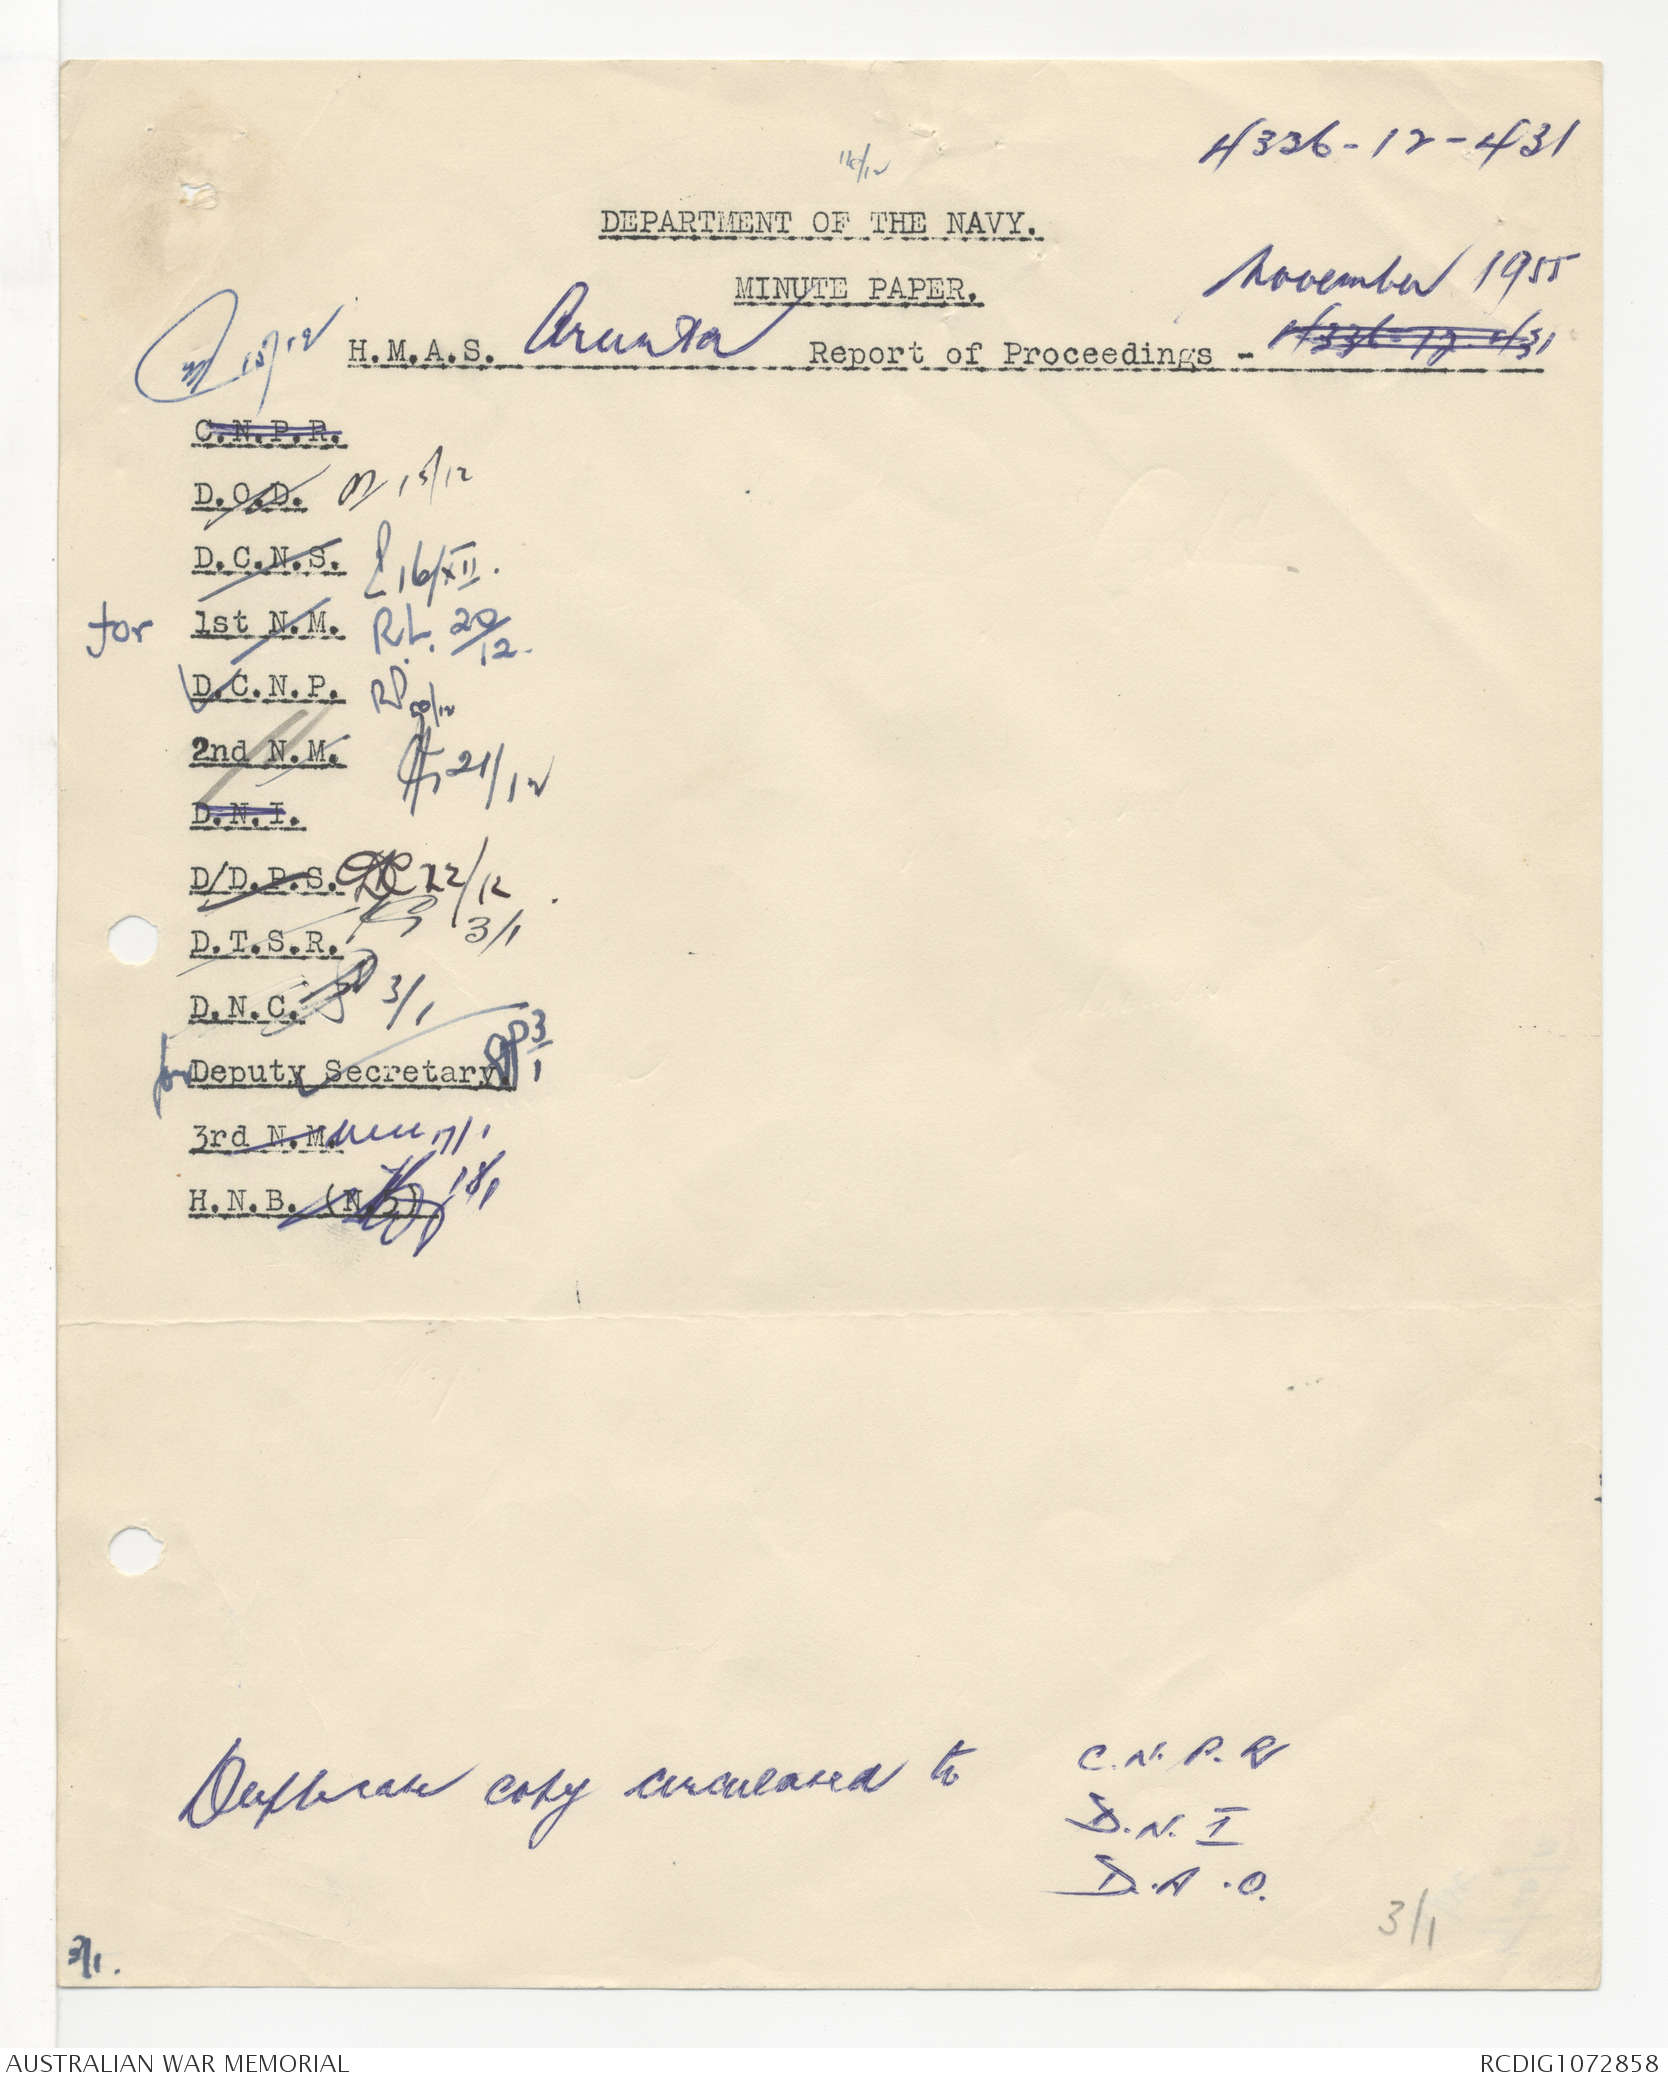 4336-12-431
16/12
DEPARTMENT OF THE NAVY.
MINUTE PAPER.
November 1955
15/12 H.M.A.S. Arunta Report of Proceedings - 4336-12-431
C.N.P.R.
D.O.D. 15/12
D.C.N.S. 16/XII.
for 1st N.M. R.L. 20/12.
D.C.N.P. RP 20/12
2nd N.M. 21/12
D.N.I.
D/D.P.S. 22/12
D.T.S.R. 3/1
D.N.C. 3/1
for Deputy Secretary 3/1
3rd N.M. 17/1
H.N.B. 18/1
Duplicate copy circulated to C.N.P.R
D.N.I
D.A.O.
3/1
3/1.
AUSTRALIAN WAR MEMORIAL
RCDIG1072858